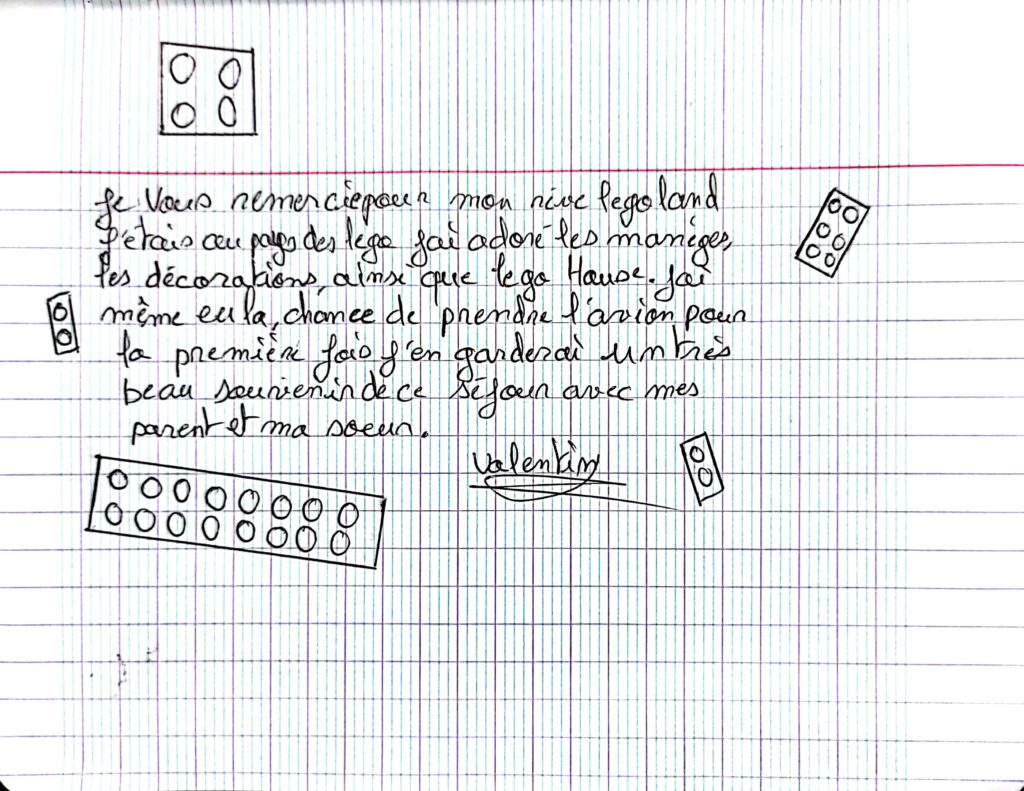 Je Vous remerciepour mon rive legoland
J'étais au pays des lego j'ai adoré les maneges,
les décorations, ainsi que lego Hause. J'ai
même eu la, chance de prendre l'avion pour
la première fois j'en garderai un très
beau souvenir de ce séjour avec mes
parent et ma soeur.
Valentin